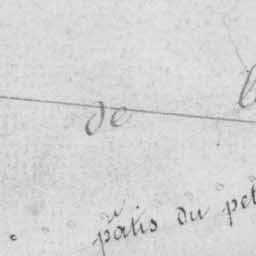 de
pâtis du pet